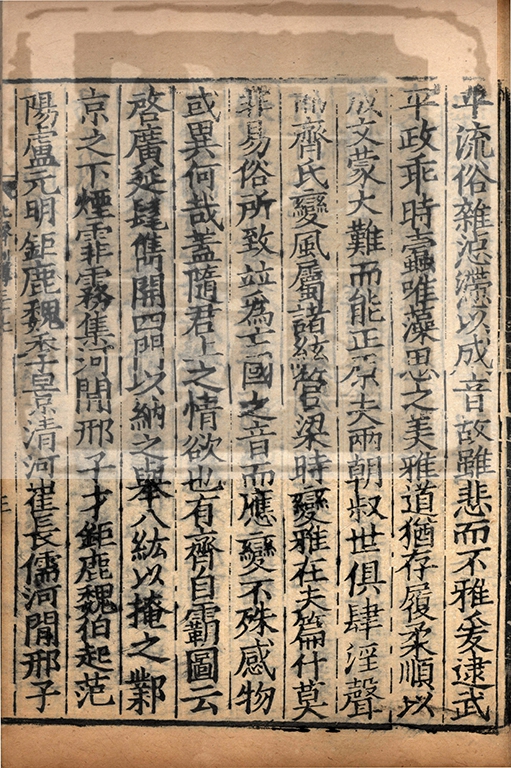 乎流俗雜惉懘以成音故雖悲而不雅爰逮武
平政乖時蠹唯藻思之美雅道猶存履柔順以
成文蒙大難而能正原夫兩朝叔世俱肆淫聲
而齊氏變風屬諸絃管梁時變雅在夫篇什莫
非易俗所致並為亡國之音而應變不殊感物
或異何哉蓋隨君上之情欲也有齊自霸圖云
啓廣延髦儁開四門以納之舉八紘以掩之鄴
京之下煙霏霧集河間邢子才鉅鹿魏伯起范
陽盧元明鉅鹿魏季景清河崔長儒河間邢子